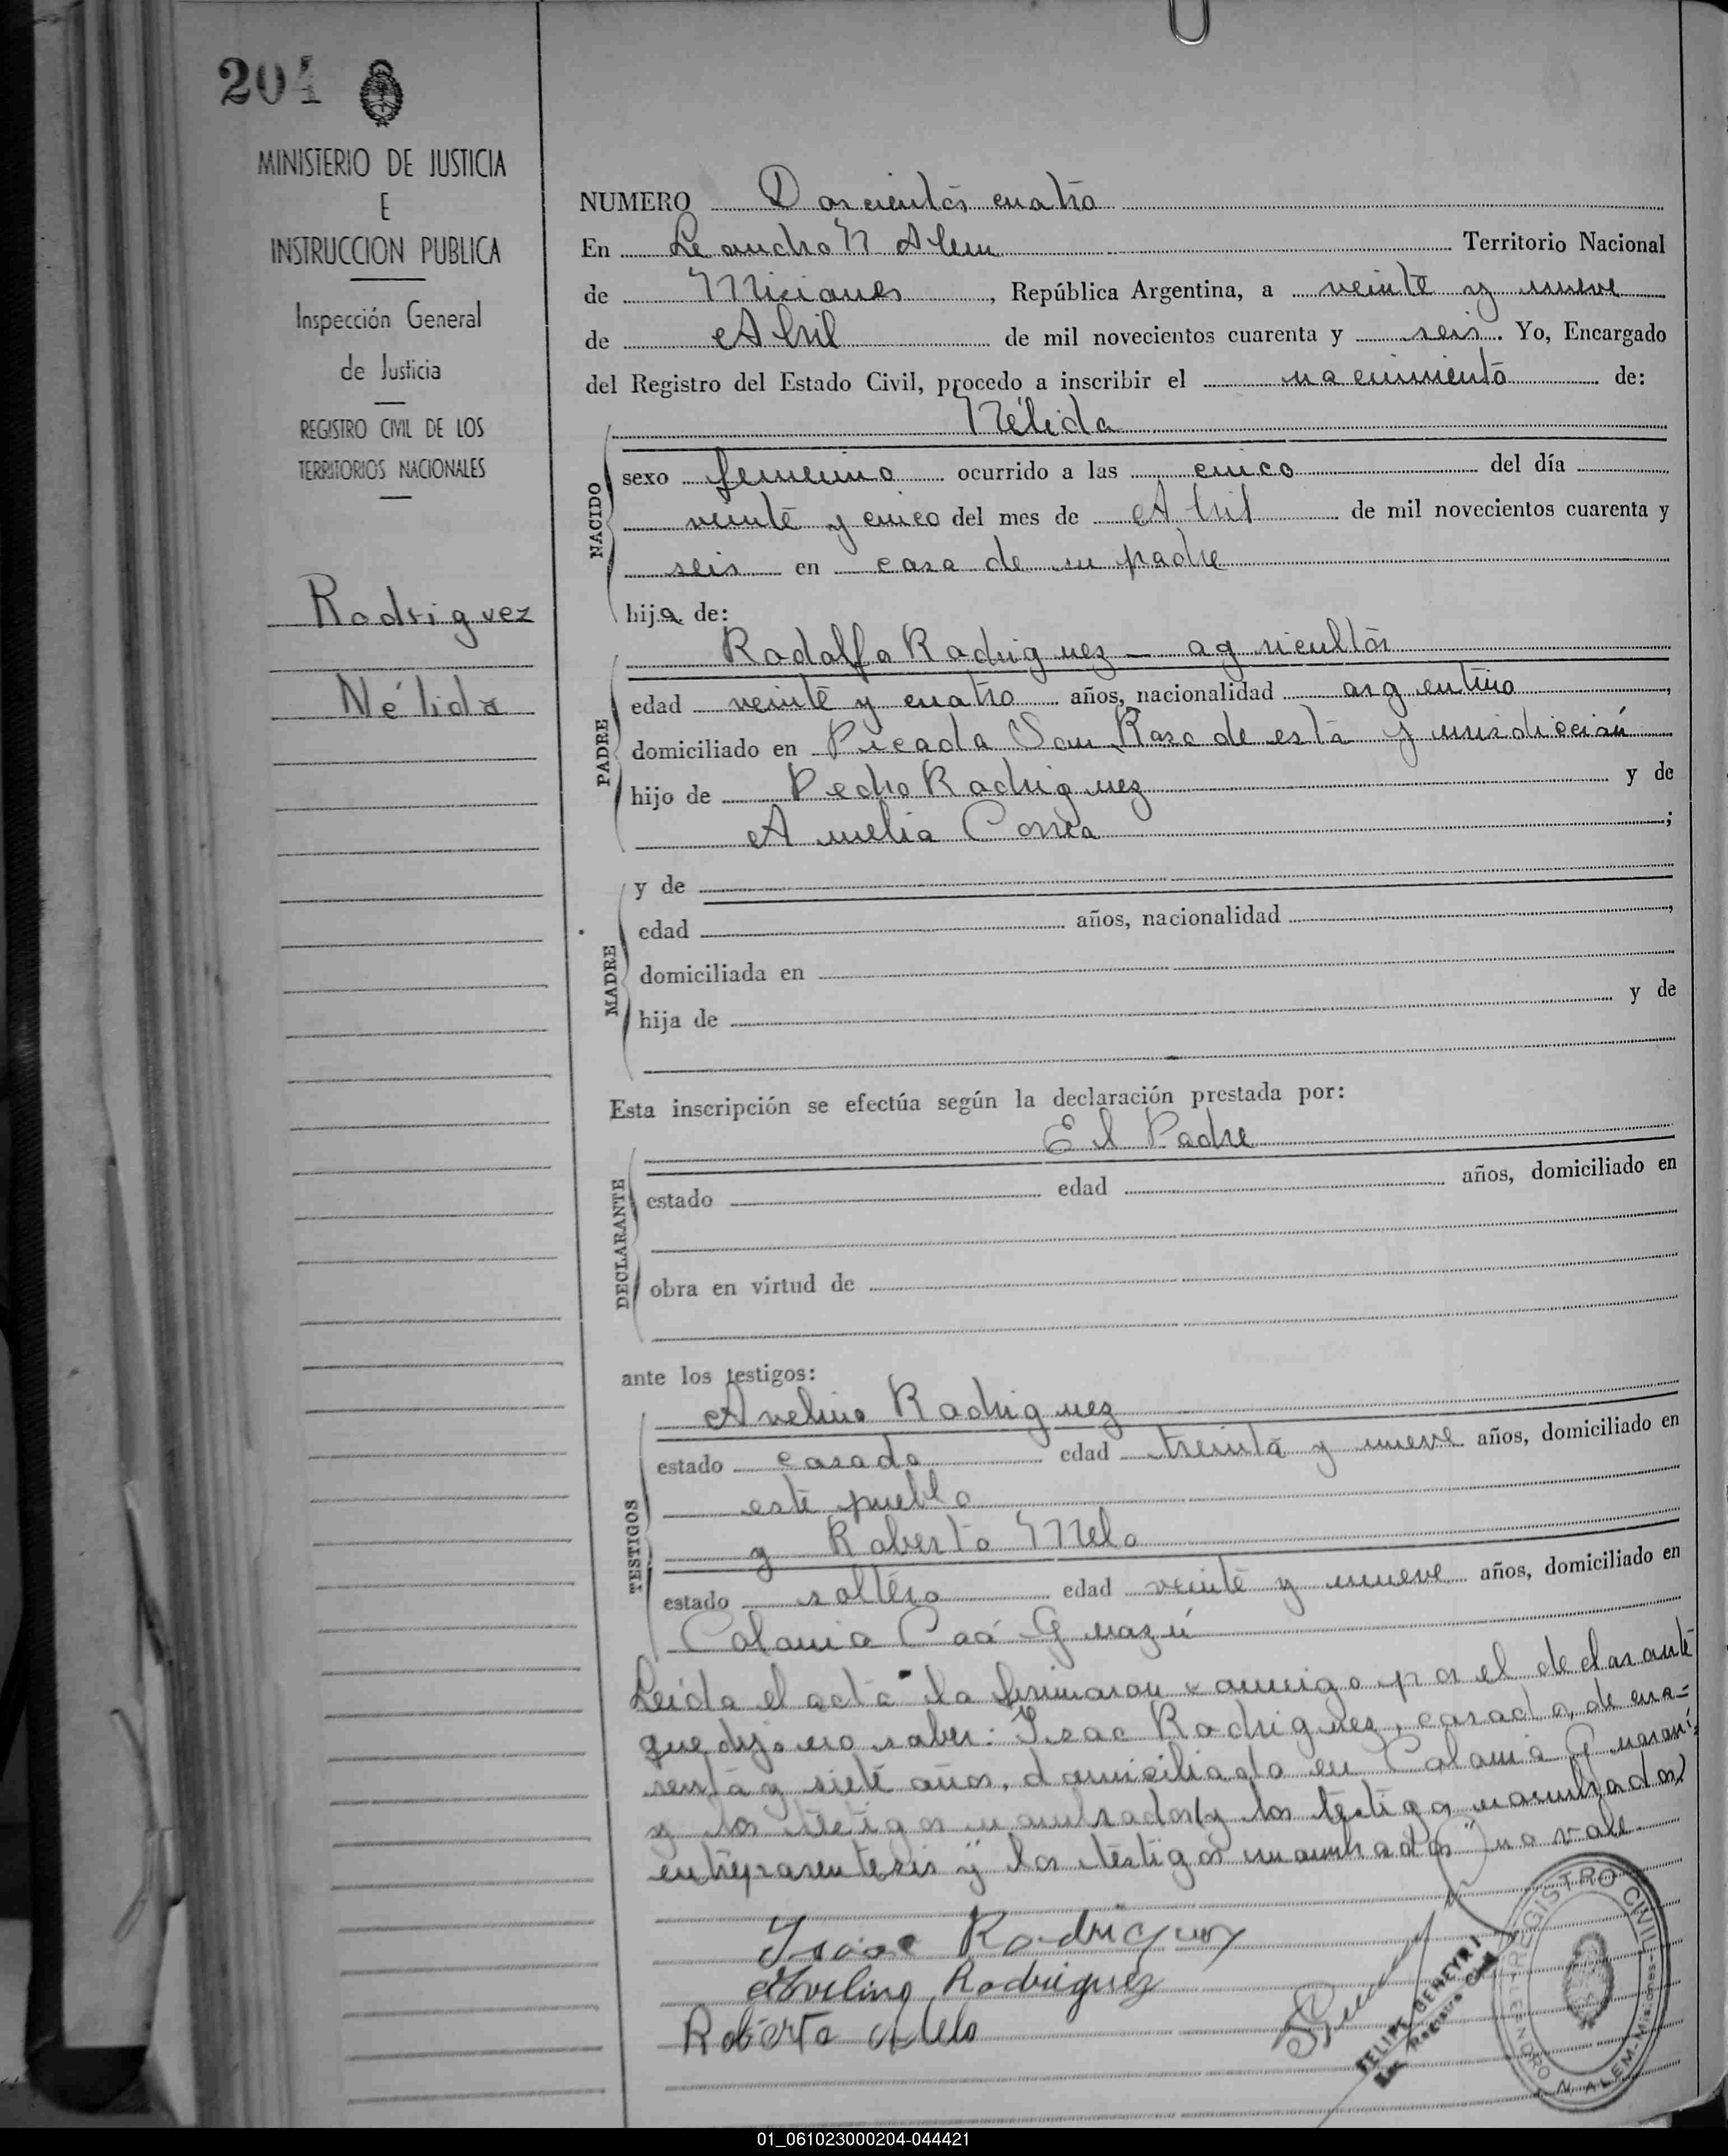 204
MINISTERIO DE JUSTICIA
E
INSTRUCCION PUBLICA
Inspección General
de Justicia
REGISTRO CIVIL DE LOS
TERRITORIOS NACIONALES
Rodriguez
Nélida
NUMERO Doscientos cuatro
En Leandro N Alem Territorio Nacional
de Misiones, República Argentina, a veinte y nueve
de Abril de mil novecientos cuarenta y seis. Yo, Encargado
del Registro del Estado Civil, procedo a inscribir el nacimiento de:
Nélida
NACIDO
sexo femenino ocurrido a las cinco del día
veinte y cinco del mes de Abril de mil novecientos cuarenta y
seis en casa de su padre
hija de:
Rodolfo Rodriguez — agricultor
PADRE
edad veinte y cuatro años, nacionalidad argentino,
domiciliado en Picada San Rosa de esta Jurisdicción
hijo de Pedro Rodriguez y de
Amelia Correa;
MADRE
y de
edad años, nacionalidad,
domiciliada en
hija de y de
Esta inscripción se efectúa según la declaración prestada por:
El Padre
DECLARANTE
estado edad años, domiciliado en
obra en virtud de
ante los testigos:
TESTIGOS
Avelino Rodriguez
estado casado edad treinta y nueve años, domiciliado en
este pueblo
y Roberto Melo
estado soltero edad veinte y nueve años, domiciliado en
Colonia Caá Guazú
Leída el acta la firmaron conmigo por el declarante
que dijo no saber: Isac Rodriguez, casado, de cua=
renta y siete años, domiciliado en Colonia Guaraní
y los testigos nombrados (y los testigos nombrados)
entreparentesis "y los testigos nombrados" no vale.
Isaac Rodriguez
Avelino Rodriguez
Roberto Melo
FELIPE GENEYRI
Enc. Registro Civil
REGISTRO CIVIL
LEANDRO N. ALEM - Misiones -
01_061023000204-044421